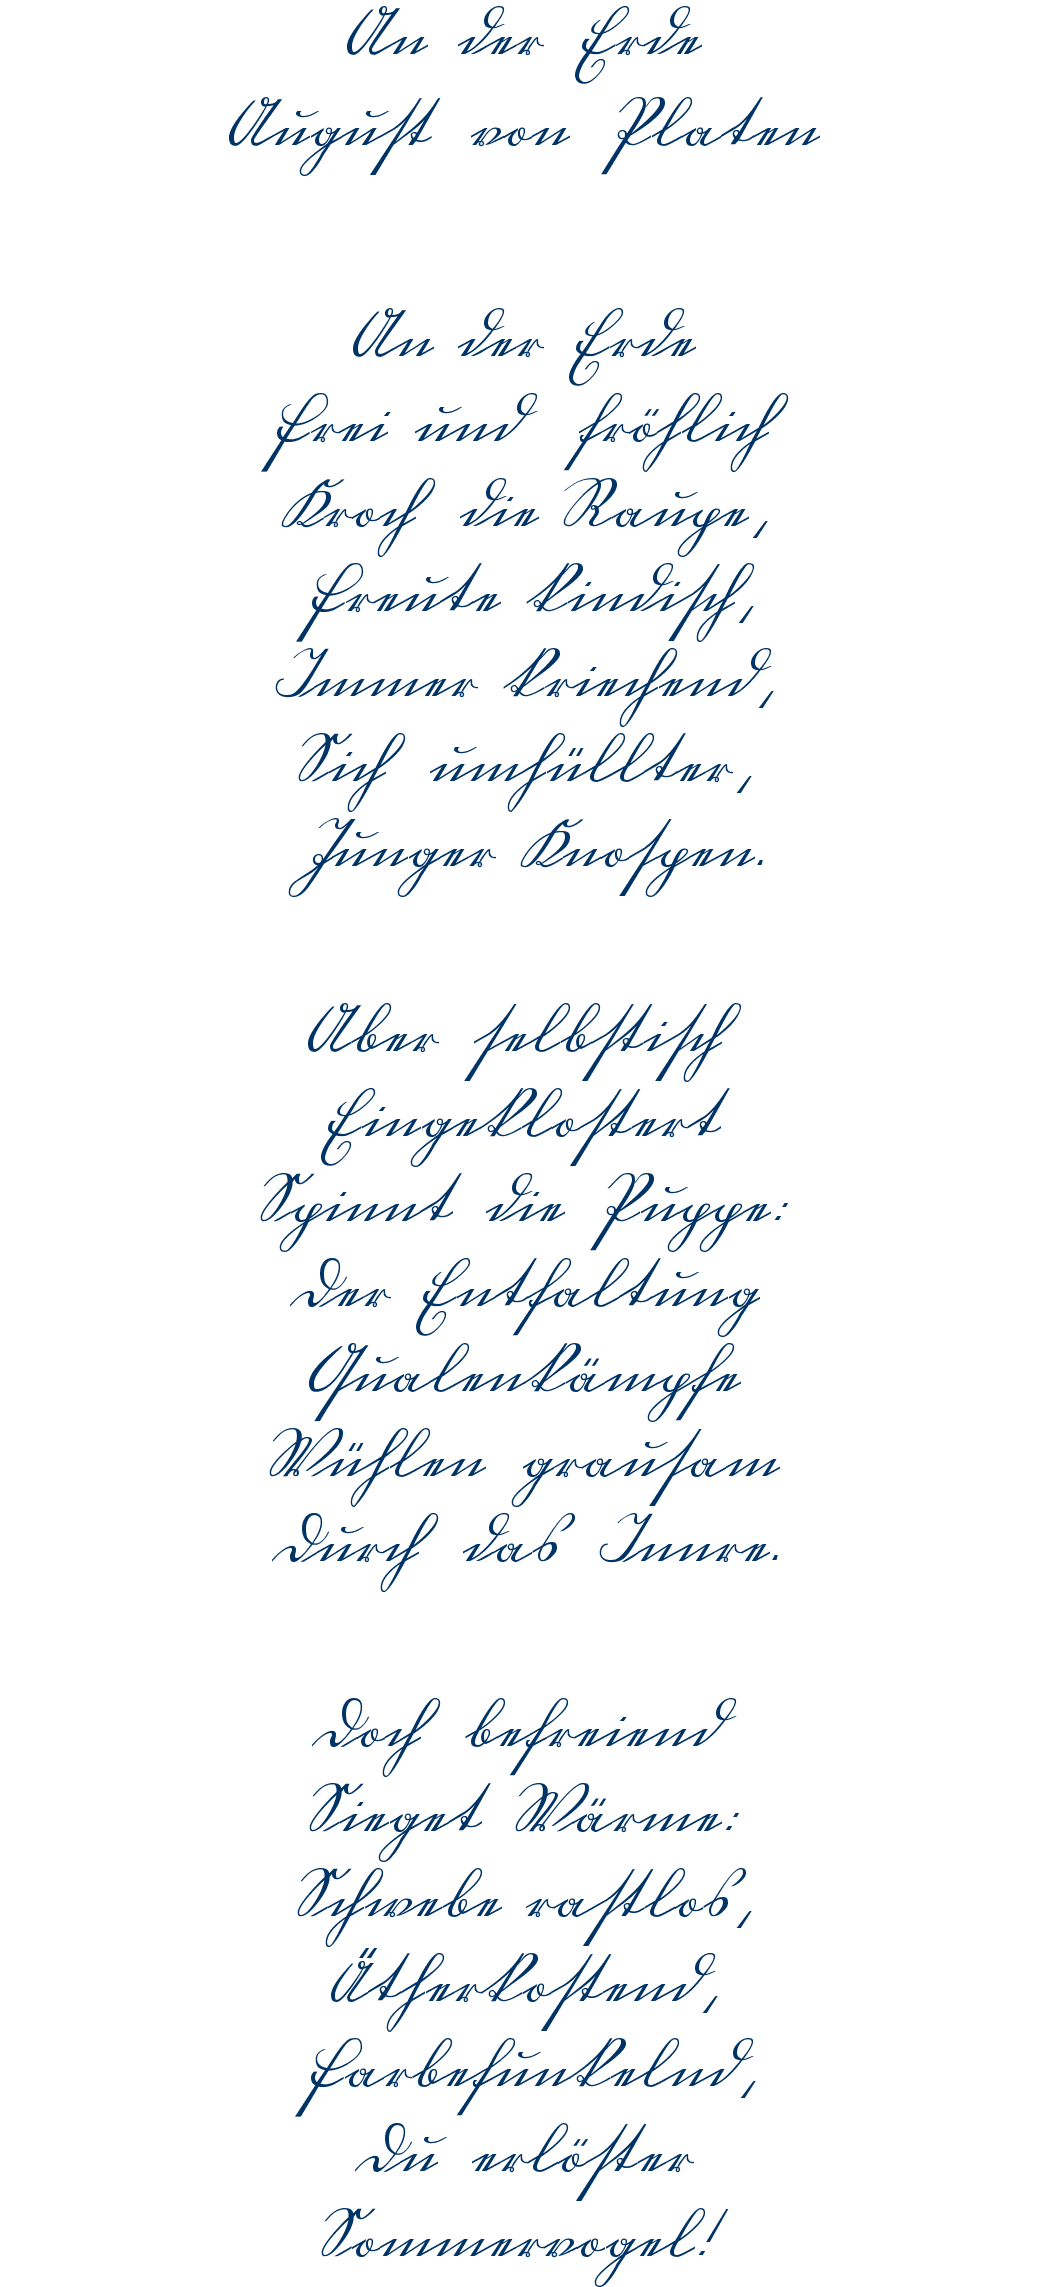 An der Erde
August von Platen
An der Erde
Frei und fröhlich
Kroch die Raupe,
Freute kindisch,
Immer kriechend,
Sich umhüllter,
Junger Knospen.
Aber selbstisch
Eingeklostert
Spinnt die Puppe:
Der Entfaltung
Qualenkämpfe
Wühlen grausam
Durch das Innre.
Doch befreiend
Sieget Wärme:
Schwebe rastlos,
Ätherkostend,
Farbefunkelnd,
Du erlöster
Sommervogel!